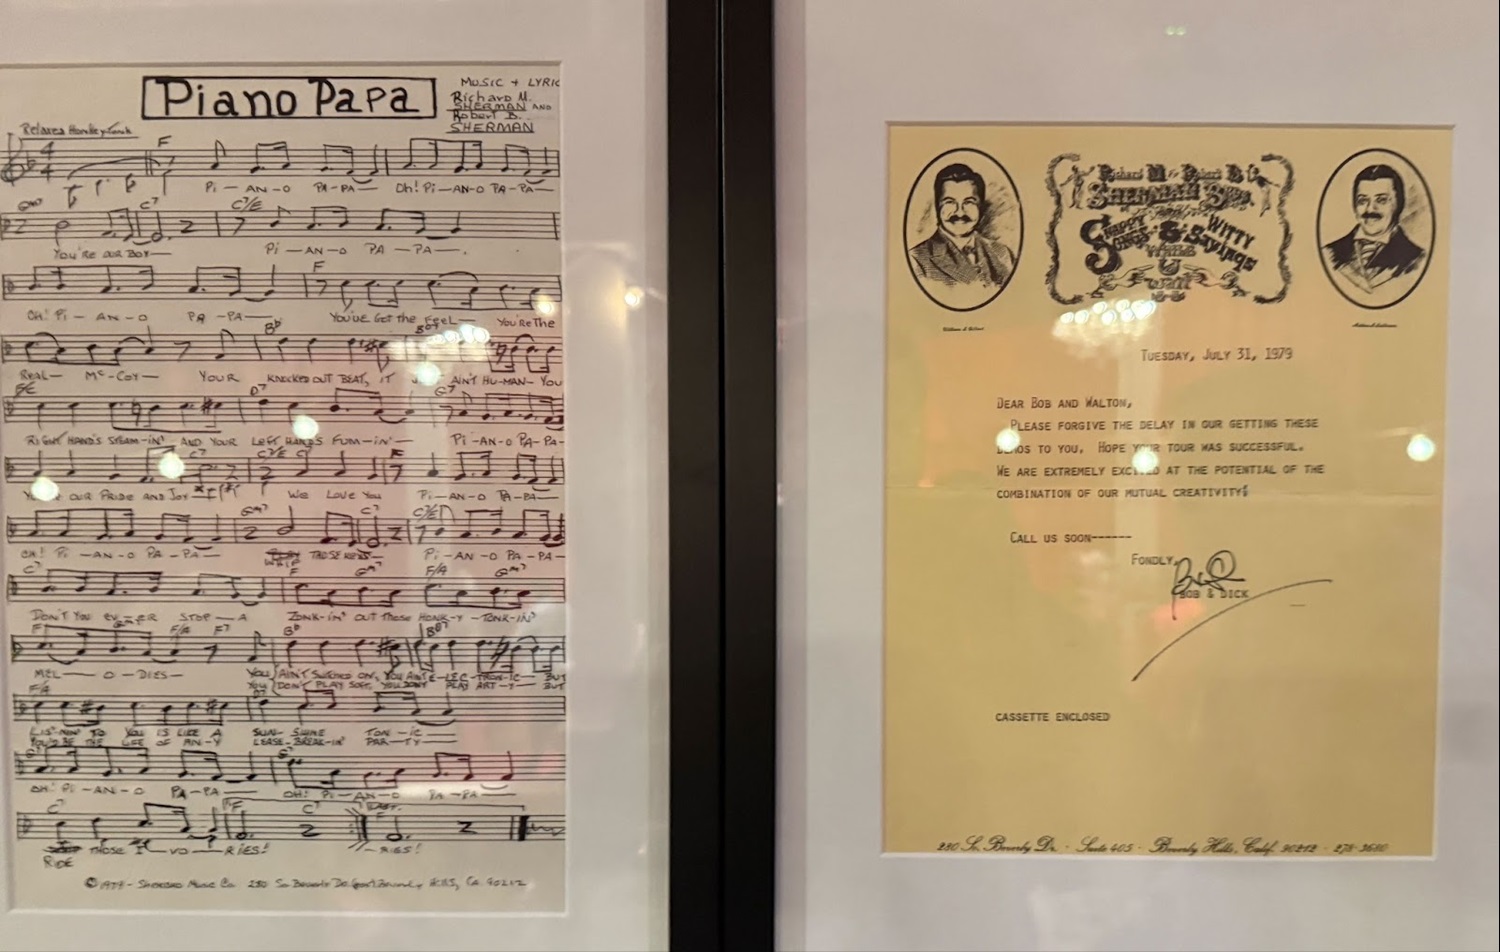 Piano Papa
MUSIC + LYRIC
Richard M.
SHERMAN AND
Robert B.
SHERMAN
Relaxed Honky Tonk
F
Pi — AN — O PA-PA — Oh! Pi — AN-O PA-PA —
C7 C7/E
YOU'RE OUR BOY — Pi — AN — O PA — PA — .
F
OH! Pi — AN — O PA — PA — YOU'VE GOT THE FEEL — YOU'RE THE
Bb
REAL — Mc-COY — YOUR KNOCKED OUT BEAT, IT AIN'T HU-MAN — YOU
D7 G7
RIGHT HAND'S STEAM-IN' AND YOUR LEFT HAND'S FUM-IN' — Pi-AN-O PA-PA-
C7 C7/E C7 F
OUR PRIDE AND JOY WE LOVE YOU Pi-AN-O PA-PA —
Gm7 C7 C7/E
OH! Pi — AN — O PA — PA — THOSE KEYS — Pi — AN — O PA-PA-
WHIP
C7 F Gm7 F/A Gm7
DON'T YOU EV-ER STOP — A ZONK-IN' OUT THOSE HONK-Y — TONK-IN'
F F/A F7 Bb
MEL — O — DIES — YOU AIN'T SWITCHED ON, YOU AIN'T E-LEC-TRON-IC — BUT
YOU DON'T PLAY SOFT, YOU DON'T PLAY ART-Y — BUT
F/A D7
LIS'-NIN' TO YOU IS LIKE A SUN-SHINE TON-IC
YOU'D BE THE LIFE OF AN-Y LEASE-BREAK-IN' PAR-TY
G7
OH! Pi — AN — O PA-PA — OH! Pi — AN — O PA-PA —
C7 F C7 F
THOSE I — VO — RIES! — RIES!
RIDE
© 1979 - Sherman Music Co. 230 So. Beverly Dr. Beverly Hills, Ca. 90212
Richard M. & Robert B.
SHERMAN Bros.
SNAPPY SONGS & WITTY Sayings
WHILE
U
Wait
TUESDAY, JULY 31, 1979
DEAR BOB AND WALTON,
PLEASE FORGIVE THE DELAY IN OUR GETTING THESE
DEMOS TO YOU. HOPE YOUR TOUR WAS SUCCESSFUL.
WE ARE EXTREMELY EXCITED AT THE POTENTIAL OF THE
COMBINATION OF OUR MUTUAL CREATIVITY!
CALL US SOON------
FONDLY,
BOB & DICK
CASSETTE ENCLOSED
230 So. Beverly Dr. · Suite 405 · Beverly Hills, Calif. 90212 · 278-3680